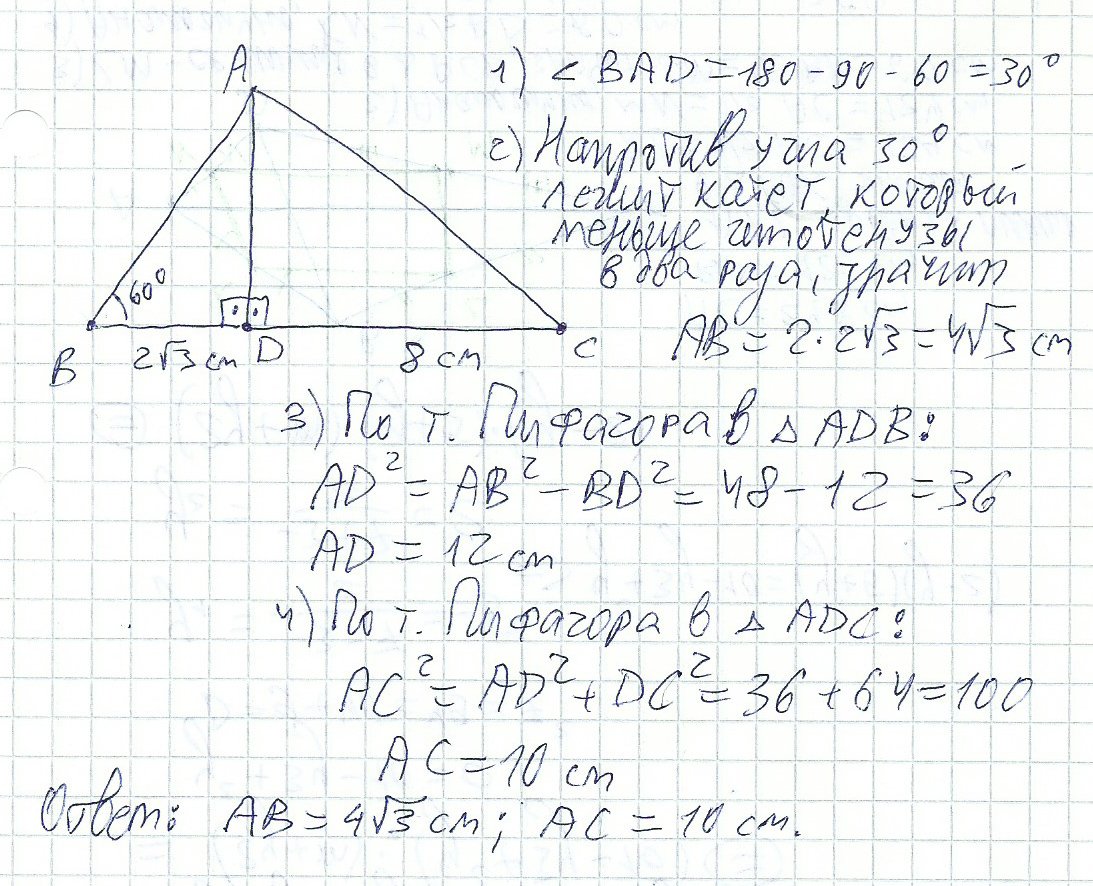 A
60°
B
2√3 см
D
8 см
C
1) ∠ BAD = 180 - 90 - 60 = 30°
2) Напротив угла 30°
лежит катет, который
меньше гипотенузы
в два раза, значит
AB = 2 · 2√3 = 4√3 см
3) По т. Пифагора в △ ADB:
AD² = AB² - BD² = 48 - 12 = 36
AD = 12 см
4) По т. Пифагора в △ ADC:
AC² = AD² + DC² = 36 + 64 = 100
AC = 10 см
Ответ: AB = 4√3 см; AC = 10 см.